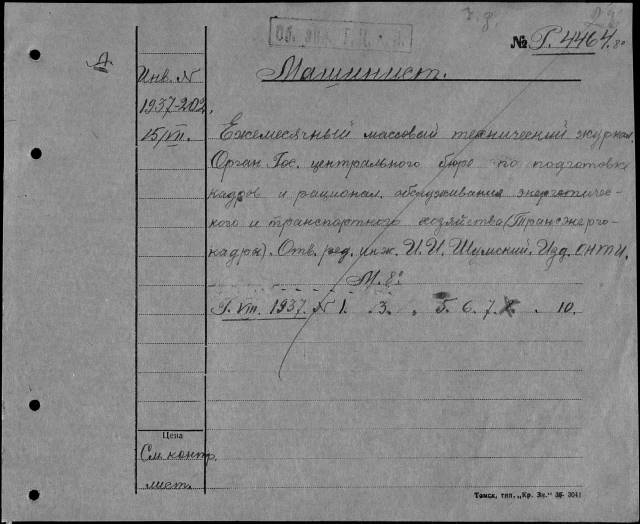 № Г. 4464. 8°
Д.
Инв. N
1937-202.
15/VII.
Машинист.
Ежемесячный массовый технический журнал.
Орган Гос. центрального бюро по подготовке
кадров и рационал. обслуживания энергетичес-
кого и транспортного хозяйства (Трансэнерго-
кадры). Отв. ред. инж. И. И. Шумский. Изд. ОНТИ.
М. 8°
Г. VIII. 1937. N 1. . 3. . 5. 6. 7. . 10.
Цена
См. контр.
лист.
Томск, тип. „Кр. Зн.“ 36- 3041